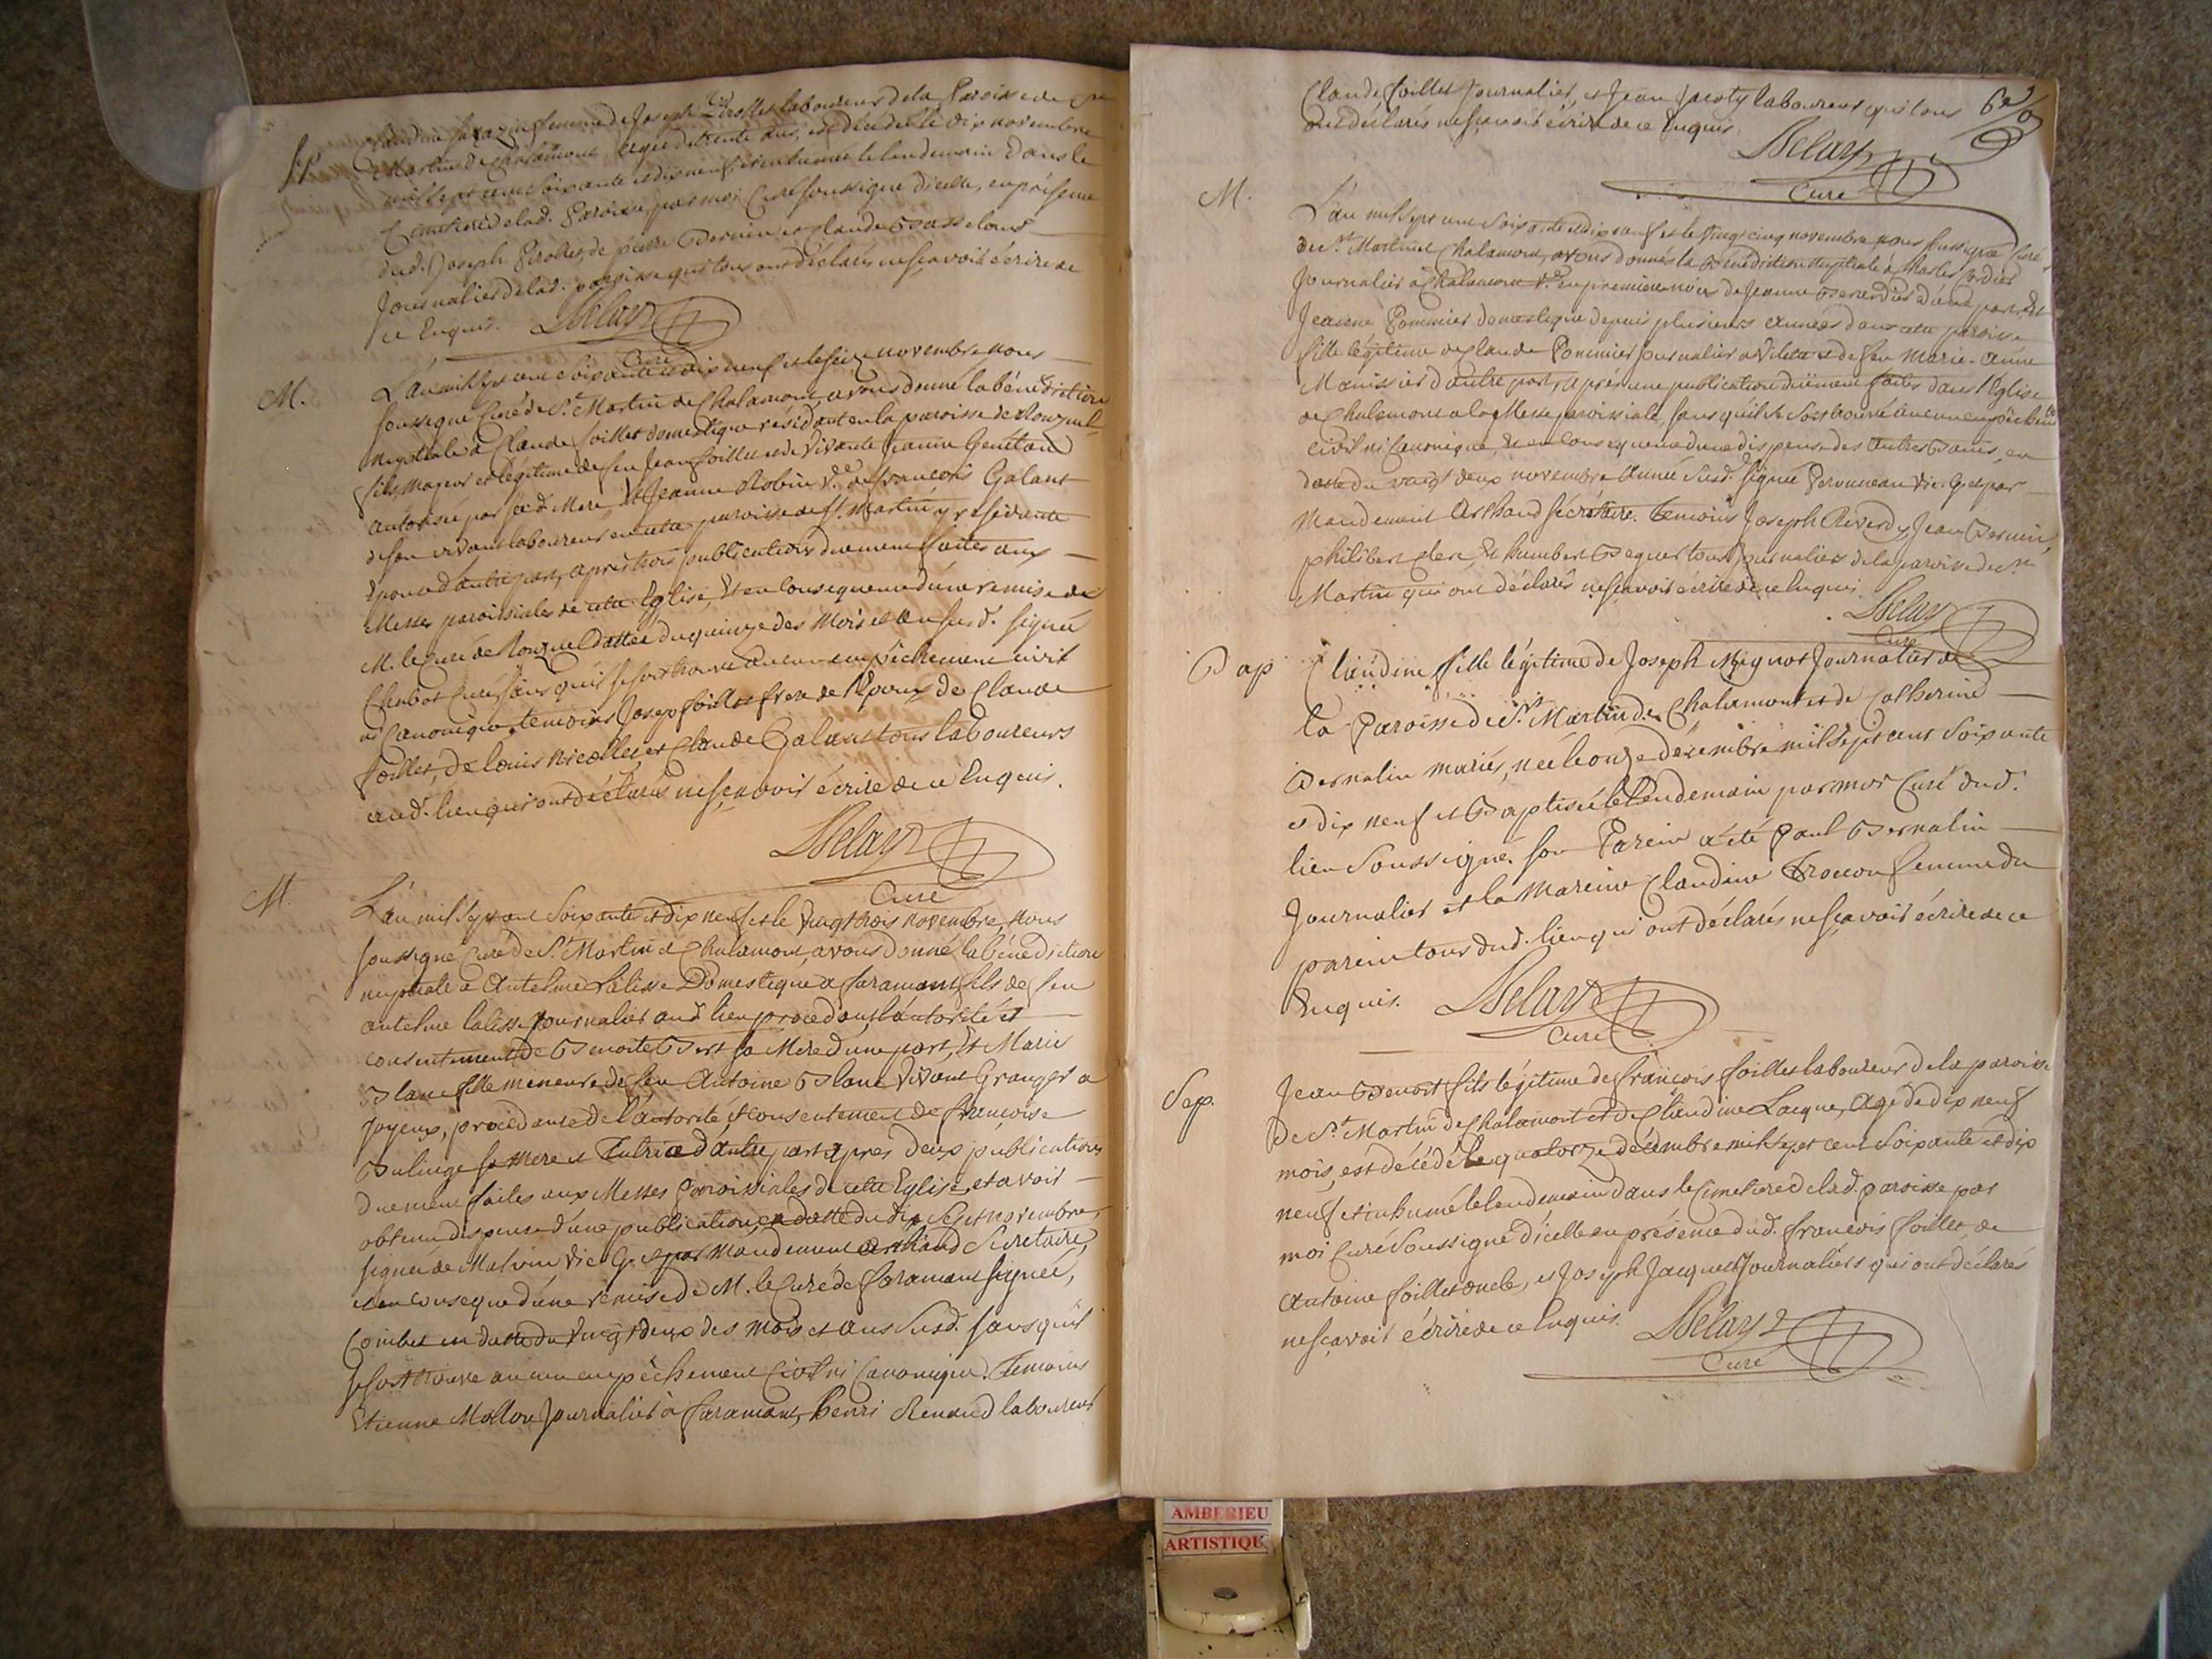 Sep.
femme de Joseph Pirollet laboureur de la Paroisse de St
Martin de Chalamont, agée de trente ans, est décédée le dix novembre
mil sept cent soixante et dix neuf, et inhumée le lendemain dans le
Cimetiere de lad. Paroisse, par moi Curé soussigné d'icelle, en présence
dud. Joseph Pirollet, de pierre Bernin et Claude
Journalier de lad. paroisse qui tous ont déclarés ne sçavoir écrire de
ce Enquis. Delay
Curé
M.
L'an mil sept cent soixante et dix neuf et le seize novembre nous
soussigné Curé de St. Martin de Chalamont, avons donné la bénédiction
nuptiale à Claude foillet domestique résidant en la paroisse de Ronzuel
fils majeur et légitime de feu Jean foillet et de vivante Jeanne
autorisée par sad. Mere, Et Jeanne Robin Ve. de françois Galant
de son vivant laboureur en cette paroisse de St. Martin y residante
Epouse d'autre part, après trois publications duement faites aux
Messes paroissiales de cette Eglise, Et en consequence d'une remise de
M. le Curé de Ronzuel dattée du quinze des mois et an susd. signée
Chabot Curé, sans qu'il se soit trouvé aucun empêchement civil
ni Canonique. temoins Joseph foillet frere de l'Epoux de Claude
foillet, de louis Nicollet, et Claude Galant tous laboureurs
aud. lieu qui ont déclarés ne sçavoir écrire de ce Enquis.
Delay
Curé
M.
L'an mil sept cent soixante et dix neuf et le vingt trois novembre, nous
soussigné Curé de St. Martin de Chalamont, avons donné la bénédiction
nuptiale à Antelme Domestique a faramant fils de feu
antelme Journalier aud. lieu procedant de l'autorité et
consentement de Benoite sa Mere d'une part, Et Marie
Blanc fille mineure de feu Antoine Blanc vivant Granger a
Joyeux, procedante de l'autorité et consentement de françoise
sa Mere et Tutrice d'autre part après deux publications
duement faites aux Messes Paroissiales de cette Eglise, et avoir
obtenu dispense d'une publication en datte du dix sept novembre,
signée de Malvin Vic. G. et par Mandement Arthaud Secretaire,
et en conseque d'une remise de M. le Curé de faramant signée,
Combet en datte du vingt deux des mois et ans susd. sans qu'il
se soit trouvé aucun empêchement Civil ni Canonique. Temoins
Etienne Mollon Journalier à faramant, henri Renaud laboureur
Claude foillet Journalier, et Jean laboureur qui tous
ont déclarés ne sçavoir écrire de ce Enquis.
Delay
Curé
M.
L'an mil sept cent soixante et dix neuf et le vingt cinq novembre nous soussigné Curé
de St. Martin de Chalamont, avons donné la Bénédiction Nuptiale à Charles
Journalier à Chalamont Ve. en premiere noces de Jeanne d'une part, Et
Jeanne Pommier domestique depuis plusieurs années dans cette paroisse
fille légitime de Claude Pommier Journalier a et de feu Marie-Anne
d'autre part, après une publication duëment faites dans l'Eglise
de Chalamont a la Messe paroissiale, sans qu'il se soit trouvé aucun empêchement
civil ni Canonique, Et en Consequence d'une dispense des autres Bans, en
datte du vingt deux novembre Année susd. signée Peronneau Vic. G. et par
Mandement Arthaud sécrétaire. temoins Joseph Reverdy, Jean Bernin,
philibert clerc Et humbert tous Journaliers de la paroisse de St
Martin qui ont déclarés ne sçavoir ecrire de ce Enquis.
Delay
Curé
Bap
Claudine fille légitime de Joseph Mignot Journalier de
la Paroisse de St. Martin de Chalamont et de Catherine
Bernalin mariés, née le onze décembre mil sept cent soixante
et dix neuf et Baptisée le lendemain par moi Curé dud.
lieu Soussigné. son Parein a été Paul Bernalin
Journalier et la Mareine Claudine femme du
parein tous dud. lieu qui ont déclarés ne sçavoir écrire de ce
Enquis. Delay
Curé
Sep.
Jean Benoit fils légitime de françois foillet laboureur de la paroisse
de St. Martin de Chalamont et de Claudine Lacque, agé de dix neuf
mois, est décédé le quatorze décembre mil sept cent soixante et dix
neuf et inhumé le lendemain dans le Cimetiere de lad. paroisse par
moi Curé Soussigné d'icelle en présence dud. françois foillet, de
Antoine foillet oncle, et Joseph Jacquet Journaliers qui ont déclarés
ne sçavoir écrire de ce Enquis. Delay
Curé
AMBERIEU
ARTISTIQU